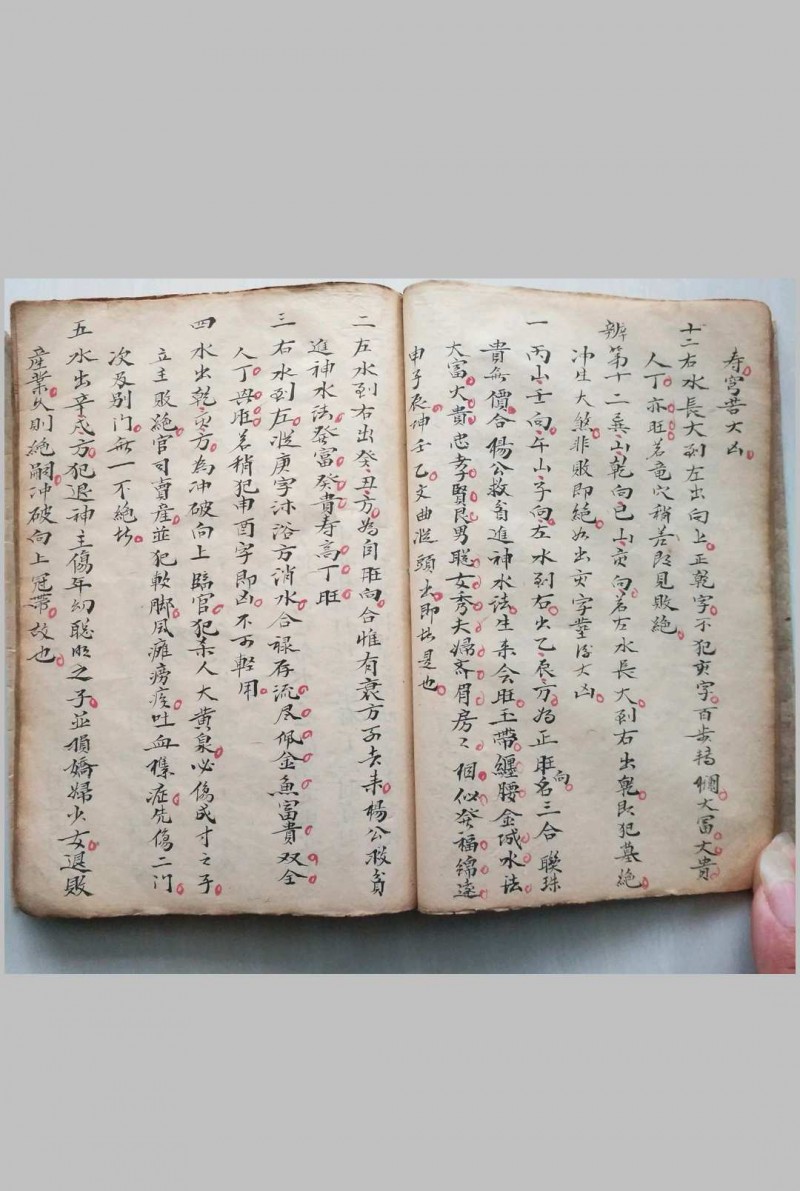 寿宫苦大凶
十二右水長大到左出向上正乾字不犯亥字百步轉欄大冨大貴
人丁亦旺若竜穴稍差即見敗絶
辨第十二巽山乾向巳山亥向若左水長大到右出乾即犯墓絶
冲生大煞非敗即絶如出亥字塟後大凶
一丙山壬向午山子向左水到右出乙辰方為正旺向名三合聯珠
貴無價合楊公救貧進神水法生来会旺玉帶纏腰金城水法
大富大貴忠孝賢良男聡女秀夫婦齐眉房々個似發福綿遠
申子辰坤壬乙文曲従頭出即此是也
二左水到右出癸丑方為自旺向合惟有衰方可去来楊公救貧
進神水法發富發貴寿高丁旺
三右水到左従庚字沐浴方消水合禄存流尽佩金魚富貴双全
人丁毋旺若稍犯申酉字即凶不可輕用
四水出乾亥方為冲破向上臨官犯杀人大黄泉必傷成才之子
立主敗絶官司賣産並犯軟脚風癱痨疾吐血等症先傷二门
次及别门無一不絶者
五水出辛戌方犯退神主傷年幼聡明之子並損嬌婦少女退敗
産業久則絶嗣冲破向上冠帶故也